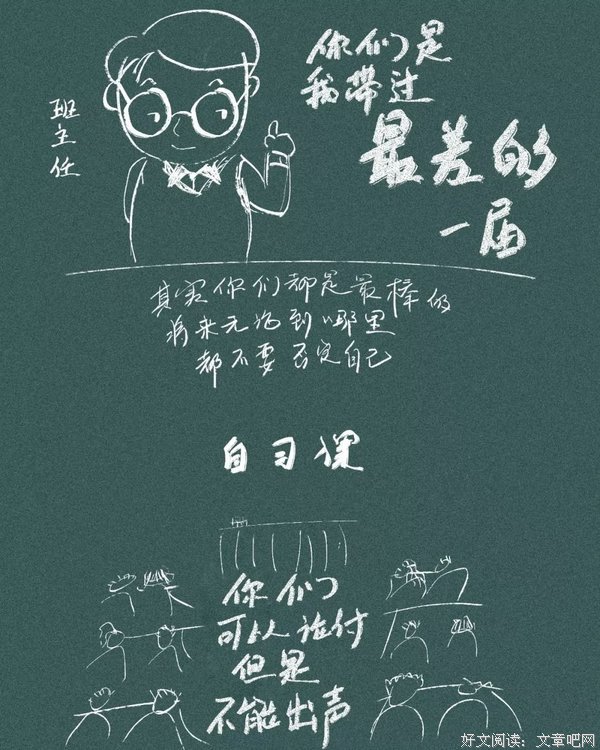 班主任
你们是
我带过
最差的
一届
其实你们都是最棒的
将来无论到哪里
都不要否定自己
自习课
你们
可以话付
但是
不能出声
好文阅读：文章吧网